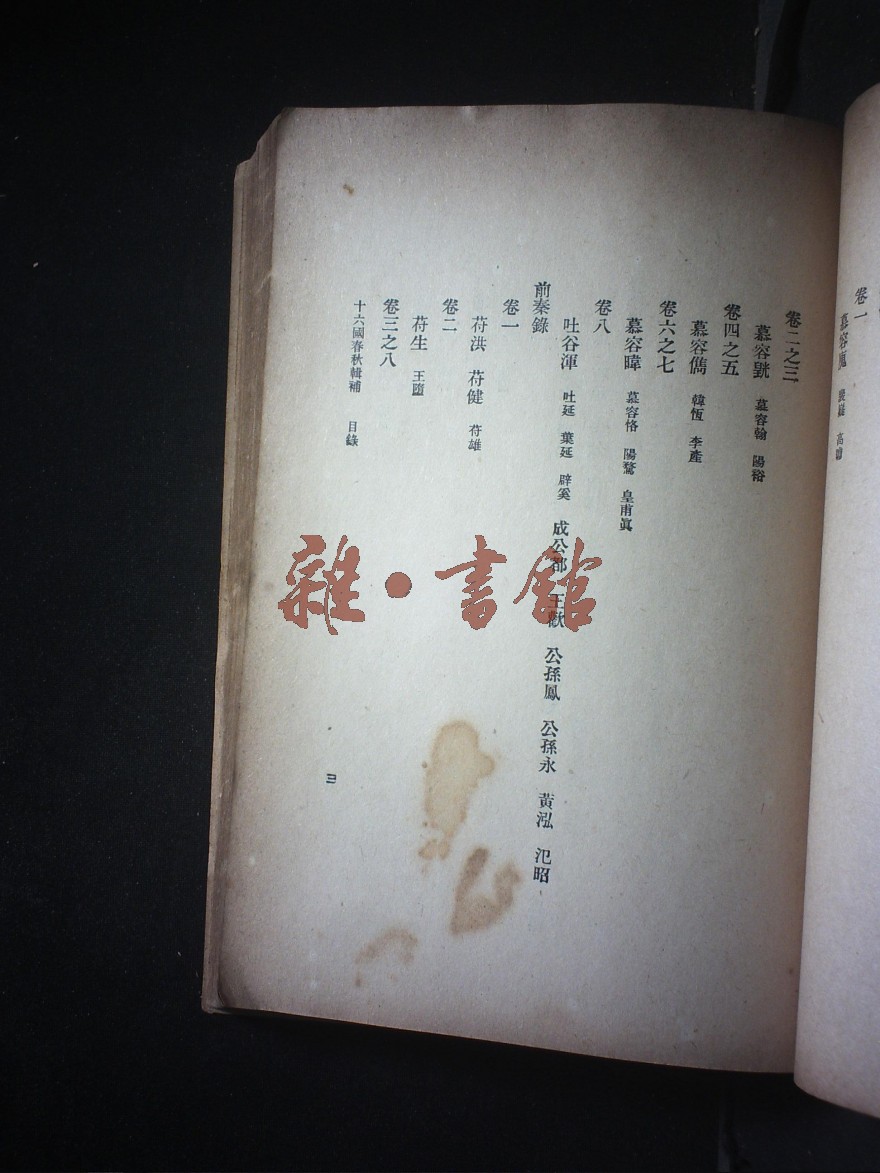 卷一
慕容廆 裴嶷 高瞻
卷二之三
慕容皝 慕容翰 陽裕
卷四之五
慕容儁 韓恆 李產
卷六之七
慕容暐 慕容恪 陽騖 皇甫眞
卷八
吐谷渾 吐延 葉延 辟奚 成公都 王歡 公孫鳳 公孫永 黃泓 氾昭
前秦錄
卷一
苻洪 苻健 苻雄
卷二
苻生 王墮
卷三之八
十六國春秋輯補 目錄
三
雜·書館